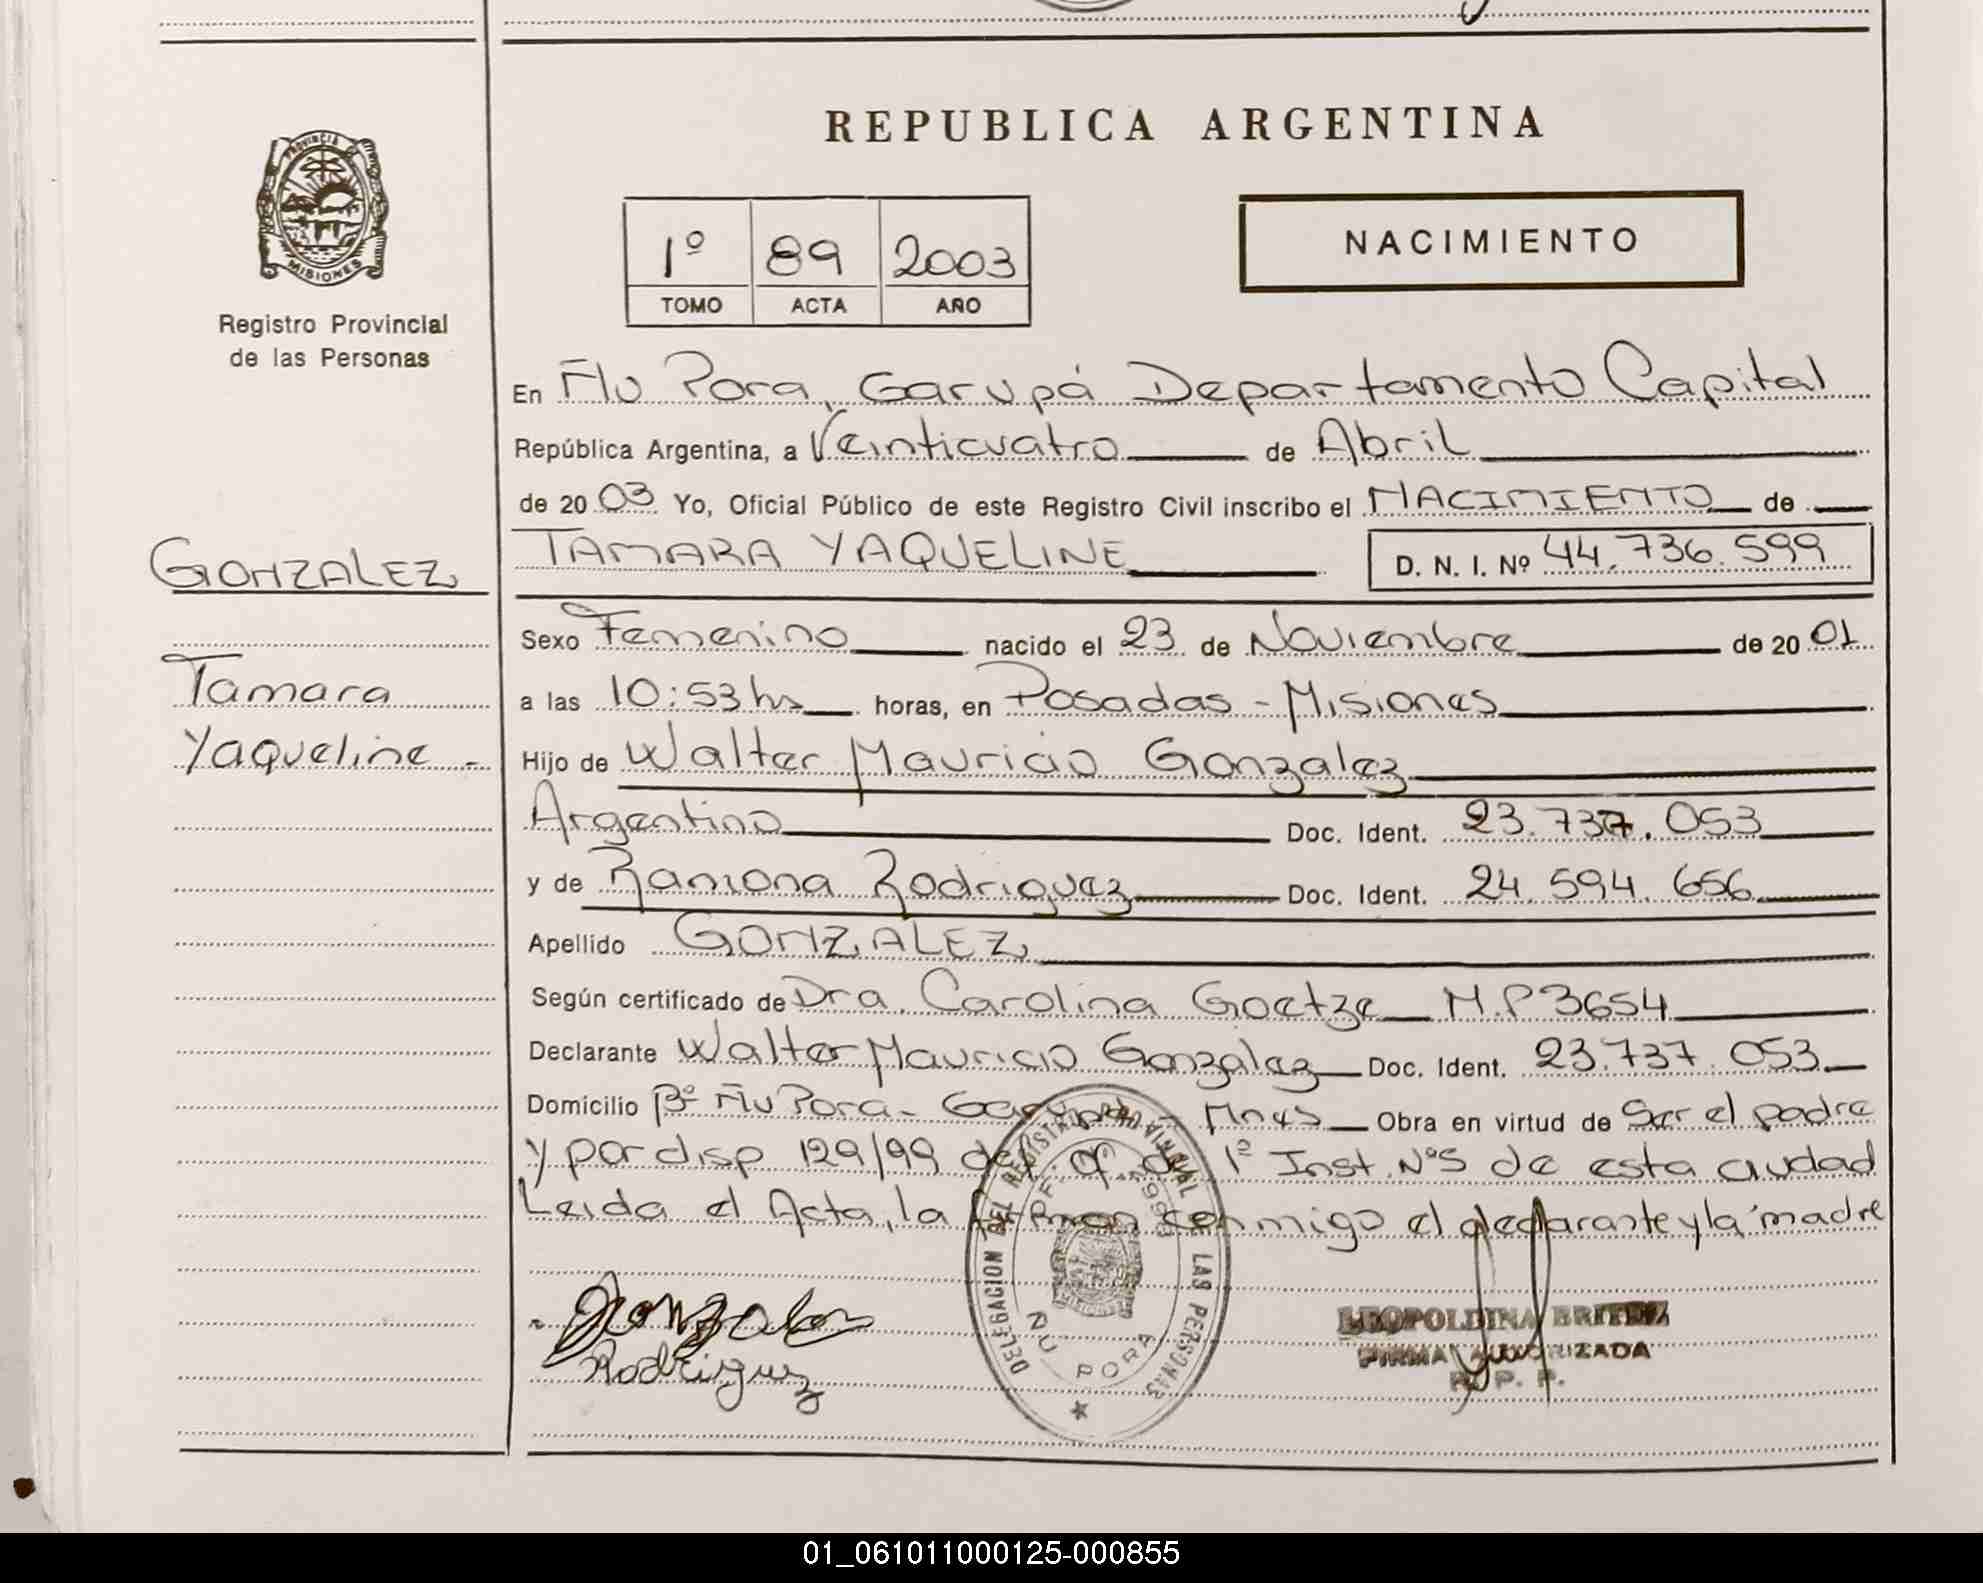 REPUBLICA ARGENTINA
PROVINCIA DE
MISIONES
Registro Provincial
de las Personas
NACIMIENTO
1º 89 2003
TOMO ACTA AÑO
En Ñu Pora, Garupá Departamento Capital
República Argentina, a Veinticuatro de Abril
de 20 03 Yo, Oficial Público de este Registro Civil inscribo el NACIMIENTO de
GONZALEZ
Tamara
Yaqueline -
TAMARA YAQUELINE D. N. I. Nº 44.736.599
Sexo Femenino nacido el 23 de Noviembre de 20 01
a las 10:53 hs horas, en Posadas - Misiones
Hijo de Walter Mauricio Gonzalez
Argentino Doc. Ident. 23.737.053
y de Ramona Rodriguez Doc. Ident. 24.594.656
Apellido GONZALEZ
Según certificado de Dra. Carolina Goetze M.P 3654
Declarante Walter Mauricio Gonzalez Doc. Ident. 23.737.053
Domicilio Bº Ñu Pora - Garupá - Mnes Obra en virtud de Ser el padre
y por disp 129/99 def. of. de 1º Inst. Nº5 de esta ciudad
Leida el Acta, la firman conmigo el declarante y la madre
Gonzalez
Rodriguez
DELEGACION DEL REGISTRO PROVINCIAL DE LAS PERSONAS
ÑU PORA
LEOPOLDINA BRITEZ
FIRMA AUTORIZADA
R. P. P.
01_061011000125-000855